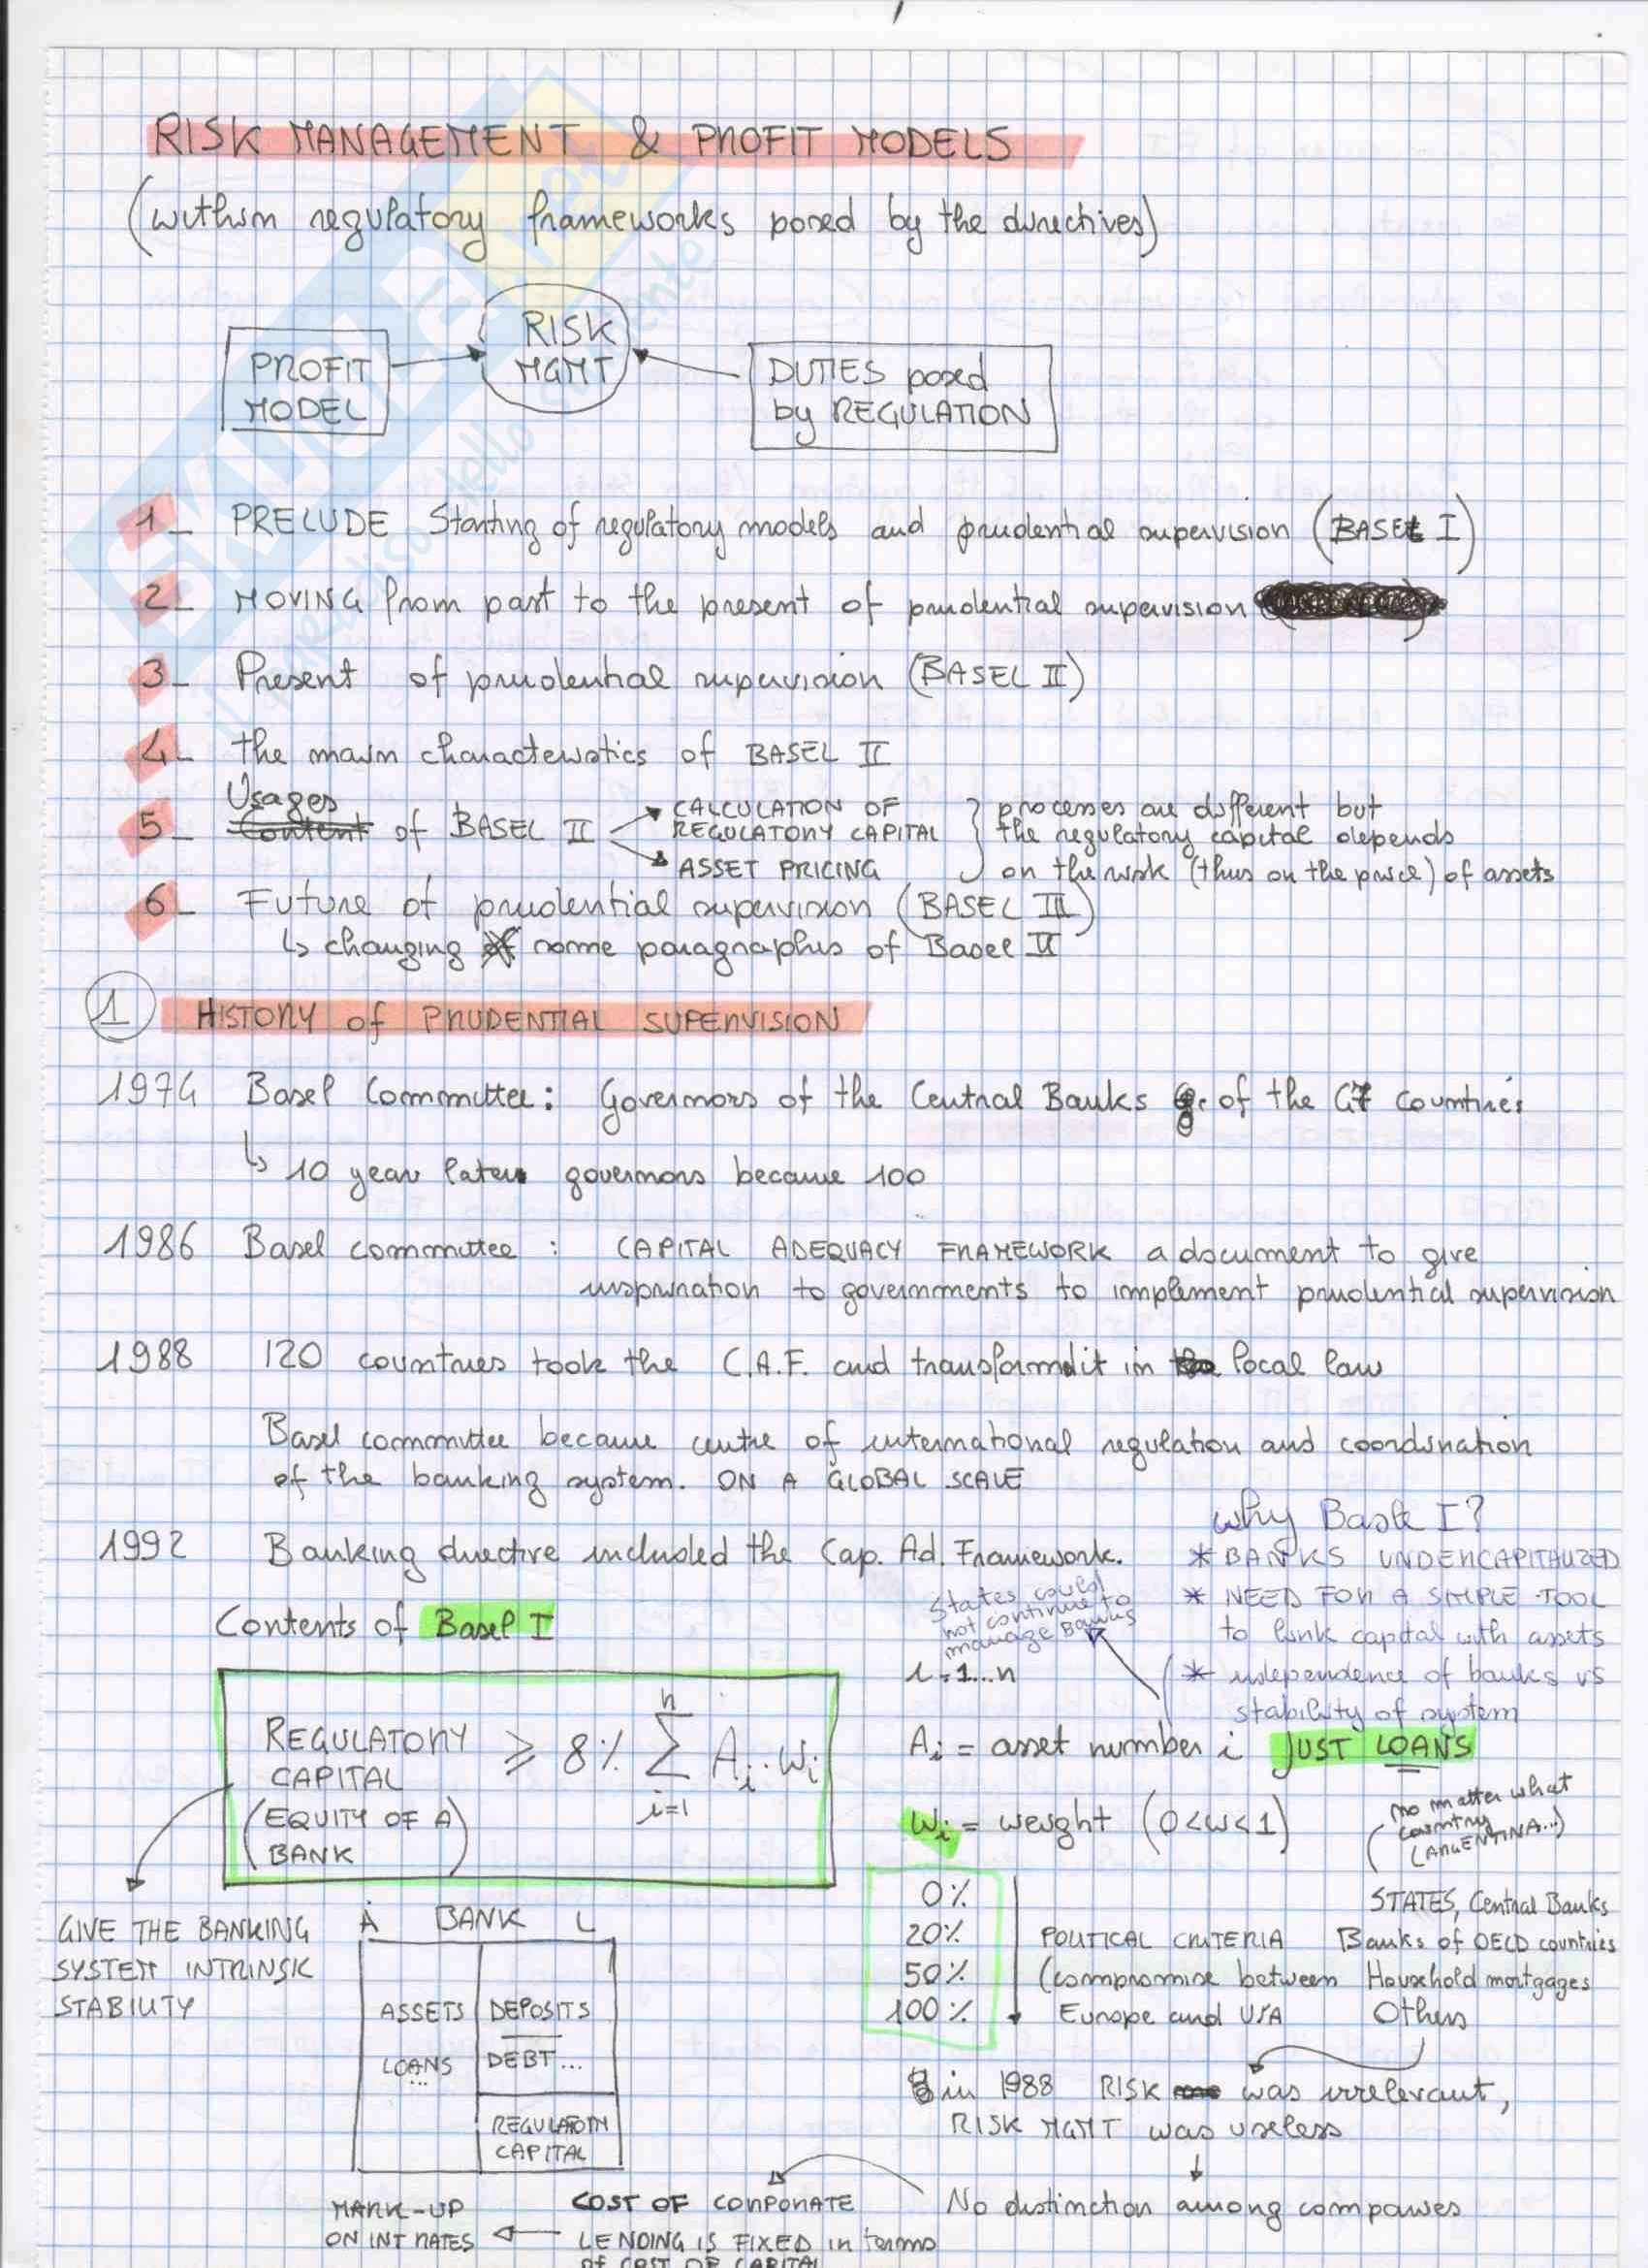 RISK MANAGEMENT & PROFIT MODELS
(within regulatory frameworks posed by the directives)
PROFIT
MODEL
RISK
MGMT
DUTIES posed
by REGULATION
1_ PRELUDE Starting of regulatory models and prudential supervision (BASEL I)
2_ MOVING from past to the present of prudential supervision
3_ Present of prudential supervision (BASEL II)
4_ the main characteristics of BASEL II
Usages
5_ Content of BASEL II
CALCULATION OF
REGULATORY CAPITAL
ASSET PRICING
processes are different but
the regulatory capital depends
on the risk (thus on the price) of assets
6_ Future of prudential supervision (BASEL III)
↳ changing some paragraphs of Basel II
1 HISTORY of PRUDENTIAL SUPERVISION
1974 Basel Committee: Governors of the Central Banks of the G7 countries
↳ 10 year later governors became 100
1986 Basel committee : CAPITAL ADEQUACY FRAMEWORK a document to give
inspiration to governments to implement prudential supervision
1988 120 countries took the C.A.F. and transformed it in local law
Basel committee became centre of international regulation and coordination
of the banking system. ON A GLOBAL SCALE
1992 Banking directive included the Cap. Ad. Framework.
why Basel I?
* BANKS UNDERCAPITALIZED
* NEED FOR A SIMPLE TOOL
to link capital with assets
* independence of banks vs
stability of system
States could
not continue to
manage Banks
Contents of Basel I
REGULATORY
CAPITAL
(EQUITY OF A
BANK)
≥ 8% n∑i=1 Ai·wi
i=1...n
Ai = asset number i JUST LOANS
Wi = weight (0<w<1)
(no matter what
country
(ARGENTINA...)
0% STATES, Central Banks
20% POLITICAL CRITERIA Banks of OECD countries
50% (compromise between Household mortgages
100% Europe and USA Others
GIVE THE BANKING
SYSTEM INTRINSIC
STABILITY
A BANK L
ASSETS
LOANS
...
DEPOSITS
DEBT...
REGULATORY
CAPITAL
in 1988 RISK was irrelevant,
RISK MGMT was useless
No distinction among companies
COST OF CORPORATE
LENDING IS FIXED in terms
of COST OF CAPITAL
MARK-UP
ON INT RATES
SKUOLA.net
il paradiso dello studente